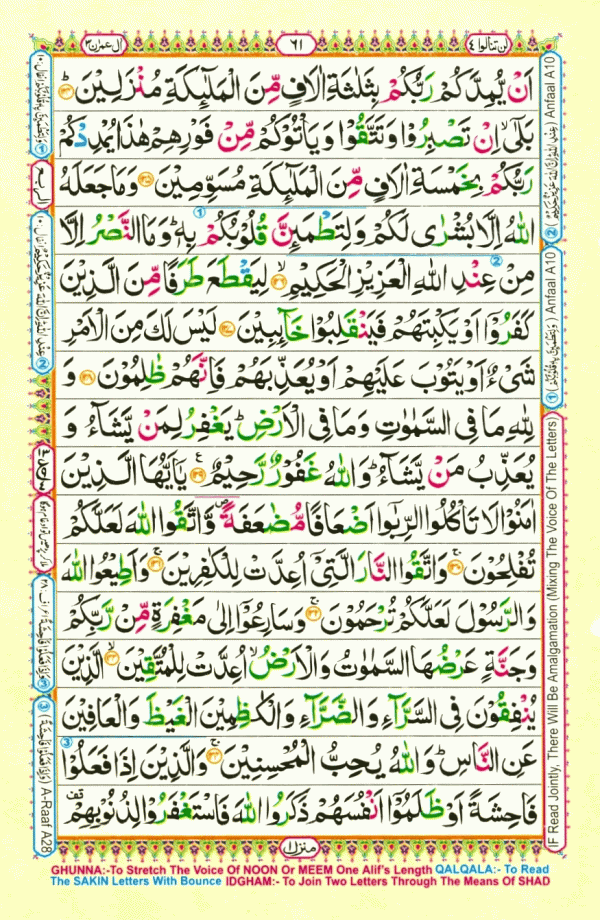 لن تنالوا ٤
٦١
اٰل عمرٰن ٣
اَنْ يُّمِدَّكُمْ رَبُّكُمْ بِثَلٰثَةِ اٰلَافٍ مِّنَ الْمَلٰٓئِكَةِ مُنْزَلِيْنَ ؕ﴿۱۲۴﴾
بَلٰٓى ۙ اِنْ تَصْبِرُوْا وَتَتَّقُوْا وَيَاْتُوْكُمْ مِّنْ فَوْرِهِمْ هٰذَا يُمْدِدْكُمْ
رَبُّكُمْ بِخَمْسَةِ اٰلَافٍ مِّنَ الْمَلٰٓئِكَةِ مُسَوِّمِيْنَ ﴿۱۲۵﴾ وَمَا جَعَلَهُ
اللّٰهُ اِلَّا بُشْرٰى لَكُمْ وَلِتَطْمَئِنَّ قُلُوْبُكُمْ بِهٖ ؕ وَمَا النَّصْرُ اِلَّا
مِنْ عِنْدِ اللّٰهِ الْعَزِيْزِ الْحَكِيْمِ ۙ﴿۱۲۶﴾ لِيَقْطَعَ طَرَفًا مِّنَ الَّذِيْنَ
كَفَرُوْۤا اَوْ يَكْبِتَهُمْ فَيَنْقَلِبُوْا خَآئِبِيْنَ ﴿۱۲۷﴾ لَيْسَ لَكَ مِنَ الْاَمْرِ
شَيْءٌ اَوْ يَتُوْبَ عَلَيْهِمْ اَوْ يُعَذِّبَهُمْ فَاِنَّهُمْ ظٰلِمُوْنَ ﴿۱۲۸﴾ وَ
لِلّٰهِ مَا فِى السَّمٰوٰتِ وَمَا فِى الْاَرْضِ ؕ يَغْفِرُ لِمَنْ يَّشَآءُ وَ
يُعَذِّبُ مَنْ يَّشَآءُ ؕ وَاللّٰهُ غَفُوْرٌ رَّحِيْمٌ ﴿۱۲۹﴾ يٰۤاَيُّهَا الَّذِيْنَ
اٰمَنُوْا لَا تَاْكُلُوا الرِّبٰۤوا اَضْعَافًا مُّضٰعَفَةً ۪ وَّاتَّقُوا اللّٰهَ لَعَلَّكُمْ
تُفْلِحُوْنَ ۚ﴿۱۳۰﴾ وَاتَّقُوا النَّارَ الَّتِىْۤ اُعِدَّتْ لِلْكٰفِرِيْنَ ۚ﴿۱۳۱﴾ وَاَطِيْعُوا اللّٰهَ
وَالرَّسُوْلَ لَعَلَّكُمْ تُرْحَمُوْنَ ۚ﴿۱۳۲﴾ وَسَارِعُوْۤا اِلٰى مَغْفِرَةٍ مِّنْ رَّبِّكُمْ
وَجَنَّةٍ عَرْضُهَا السَّمٰوٰتُ وَالْاَرْضُ ۙ اُعِدَّتْ لِلْمُتَّقِيْنَ ۙ﴿۱۳۳﴾ الَّذِيْنَ
يُنْفِقُوْنَ فِى السَّرَّآءِ وَالضَّرَّآءِ وَالْكٰظِمِيْنَ الْغَيْظَ وَالْعَافِيْنَ
عَنِ النَّاسِ ؕ وَاللّٰهُ يُحِبُّ الْمُحْسِنِيْنَ ۚ﴿۱۳۴﴾ وَالَّذِيْنَ اِذَا فَعَلُوْا
فَاحِشَةً اَوْ ظَلَمُوْۤا اَنْفُسَهُمْ ذَكَرُوا اللّٰهَ فَاسْتَغْفَرُوْا لِذُنُوْبِهِمْ
منزل ١
Anfaal A10 ②
Anfaal A10 ①
IF Read Jointly, There Will Be Amalgamation (Mixing The Voice Of The Letters)
③ A-Raaf A28
GHUNNA:-To Stretch The Voice Of NOON Or MEEM One Alif's Length QALQALA:- To Read
The SAKIN Letters With Bounce IDGHAM:- To Join Two Letters Through The Means Of SHAD